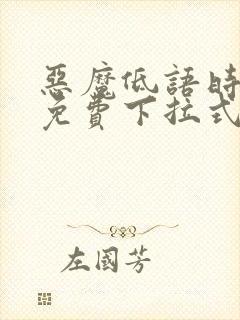 惡魔低語時
免費下拉式
左國芳